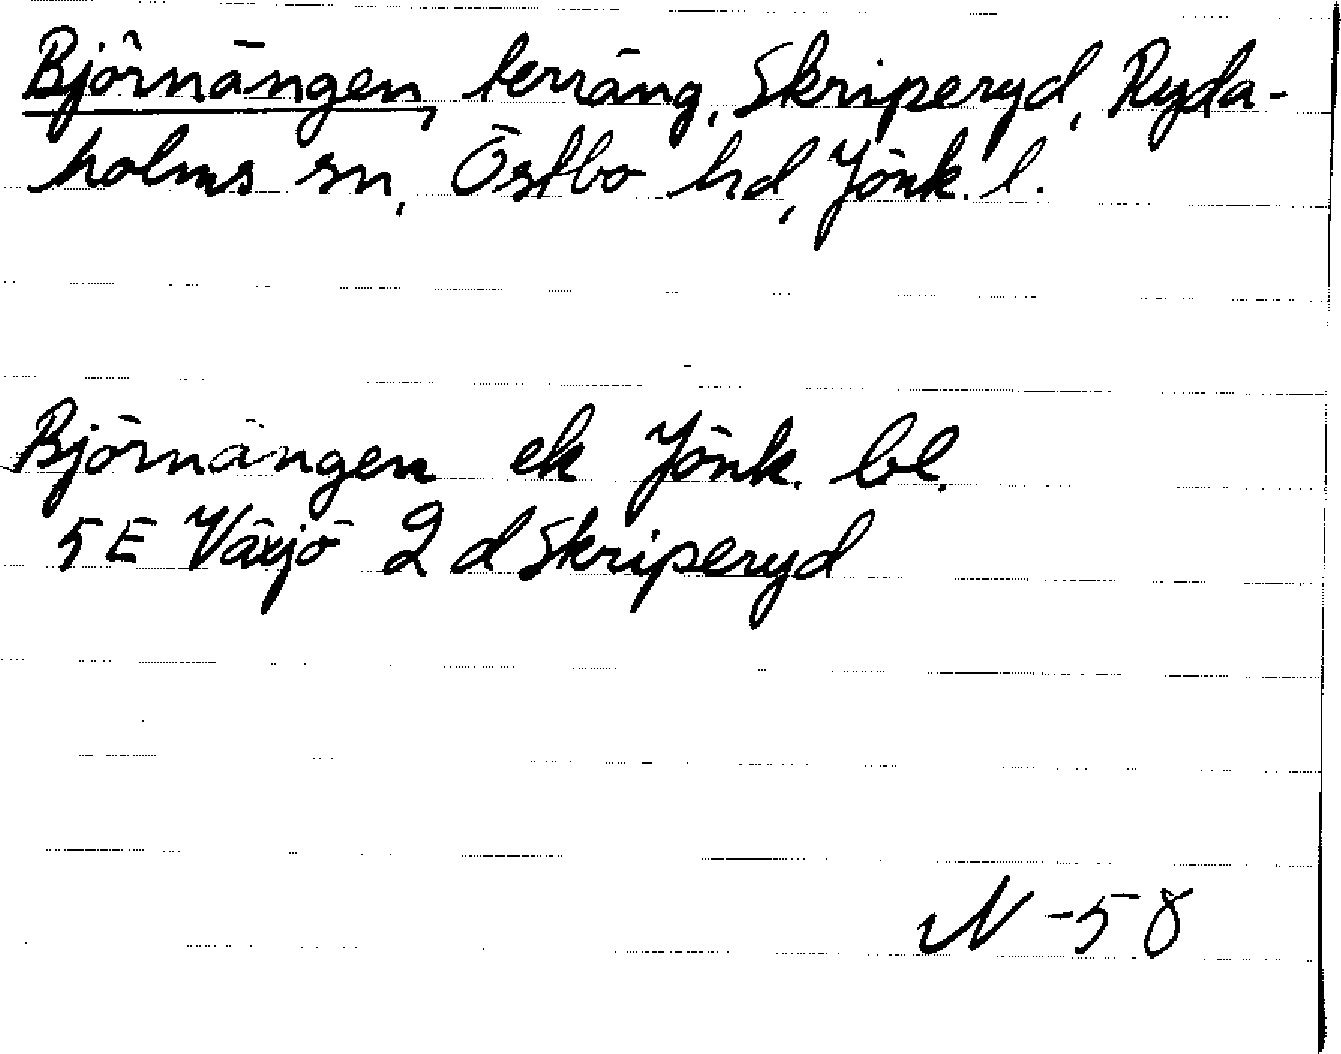 Björnängen, terräng, Skriperyd, Ryda-
holms sn, Östbo hd, Jönk. l.
Björnängen ek Jönk. bl.
5E Växjö 2 d Skriperyd
N -58